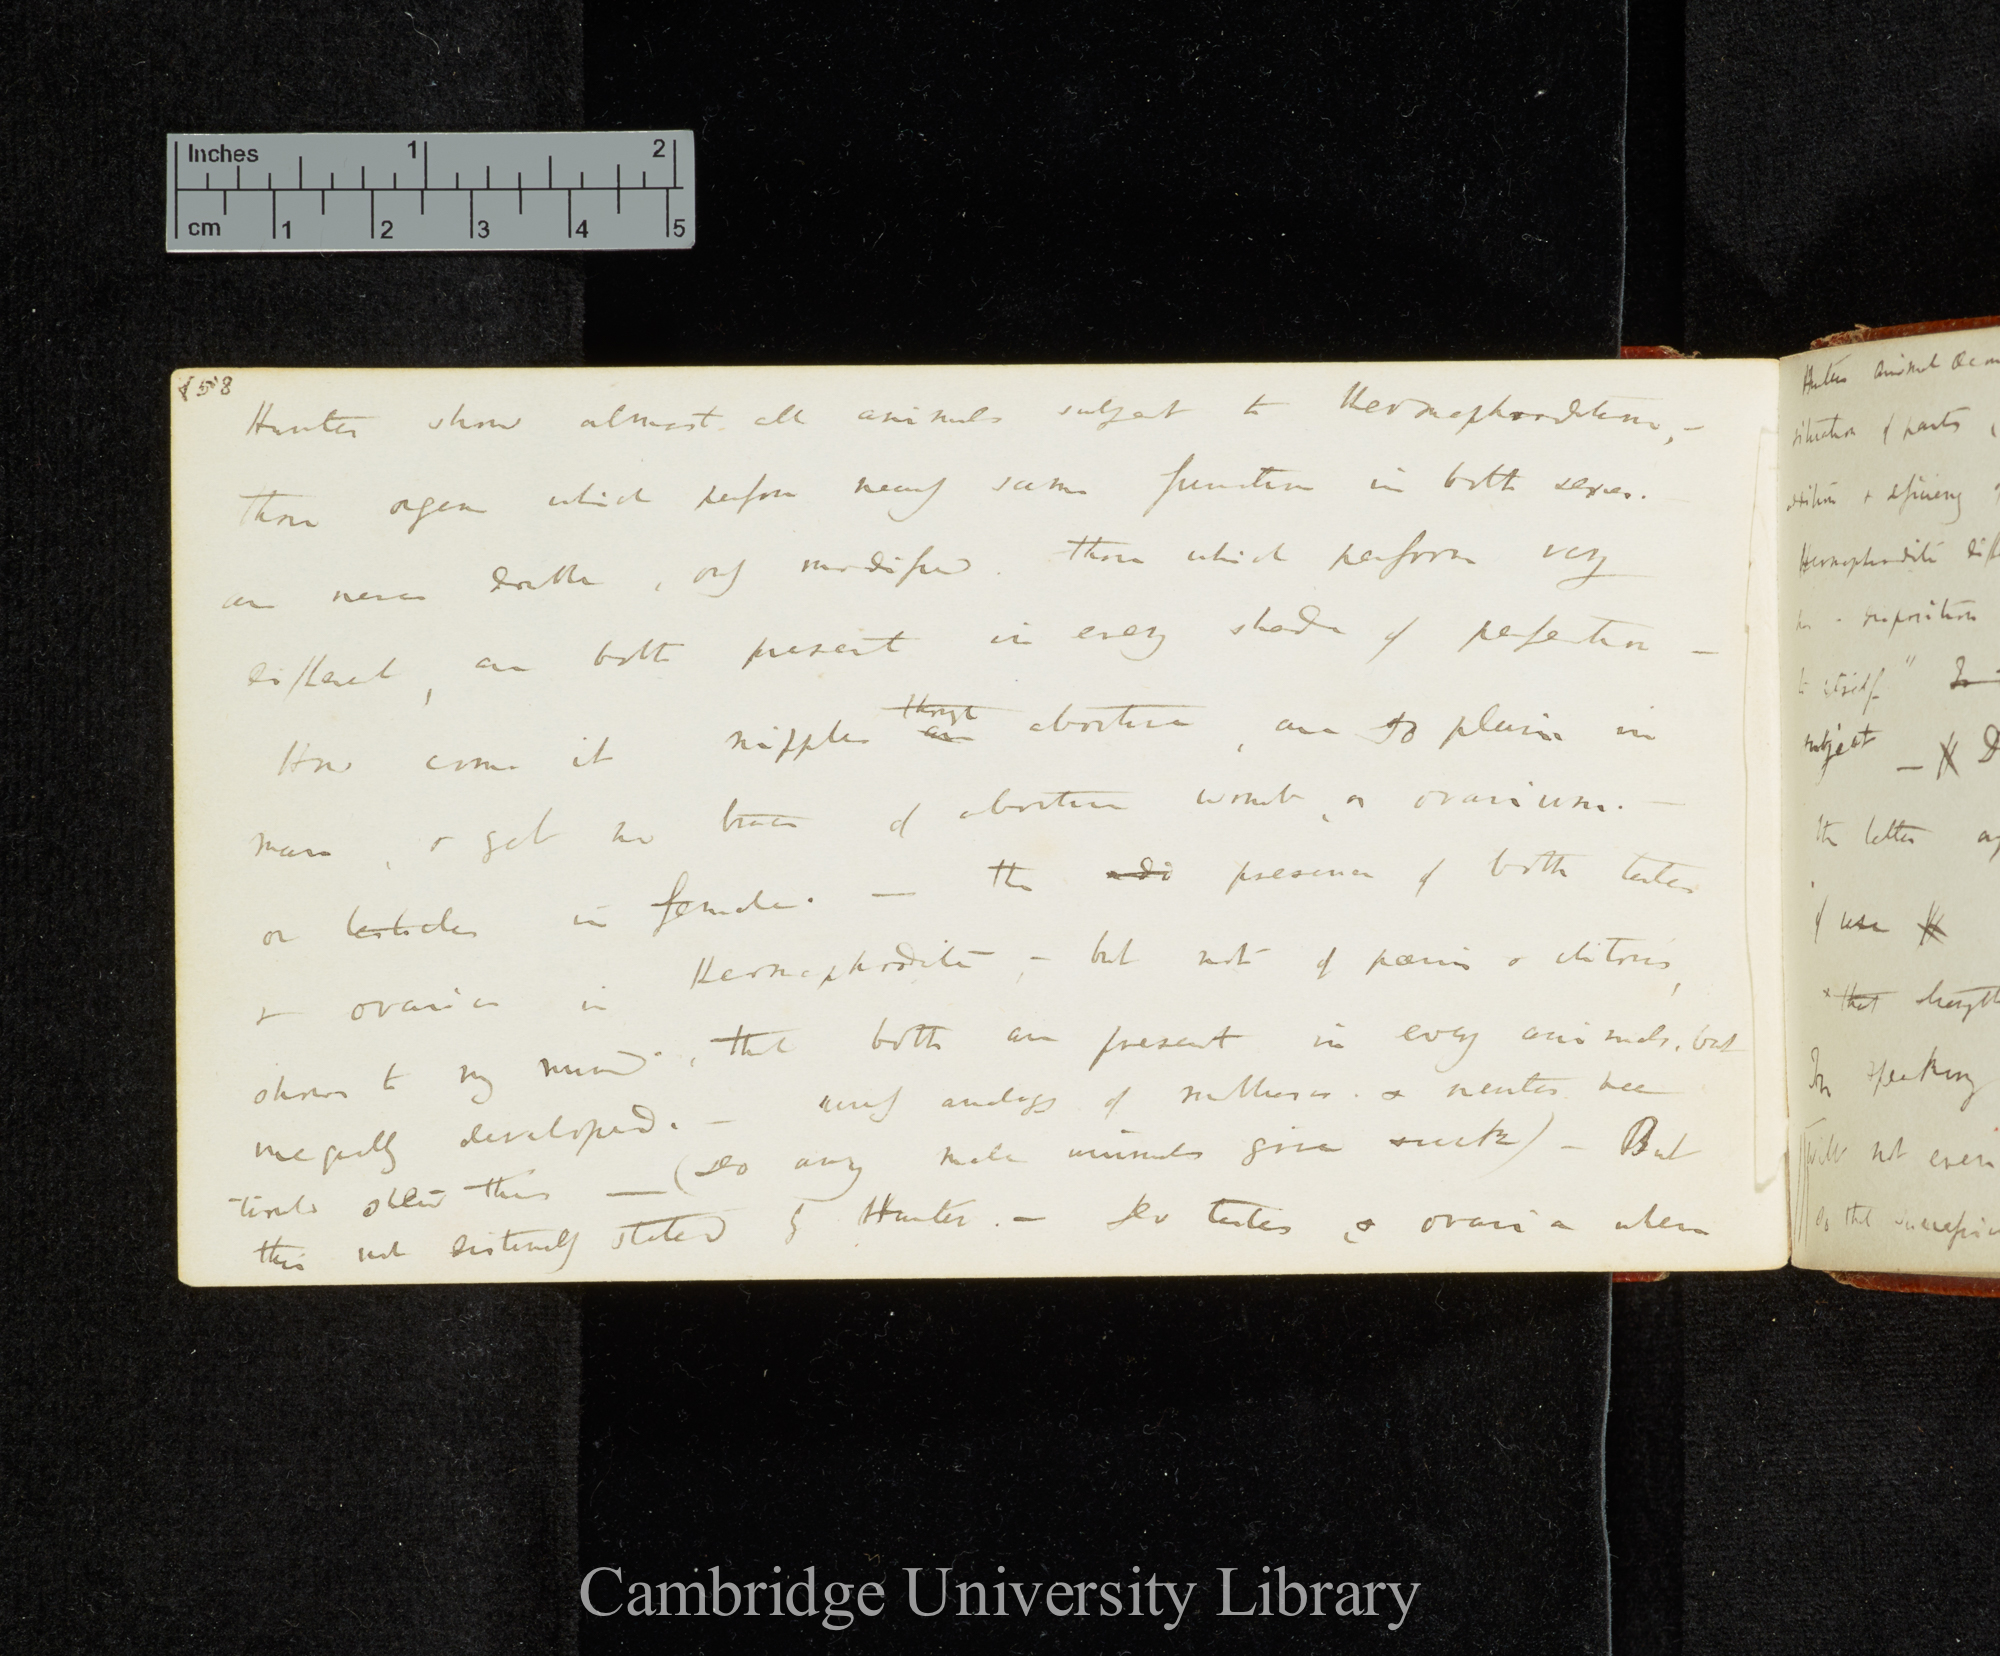 Inches 1 2
cm 1 2 3 4 5
158
Hunter shows almost all animals subject to Hermaphroditism,—
those organs which perform nearly same function in both sexes.—
are never double, only modified. those which perform very
different, are both present in every shade of perfection—
How comes it nipples though are abortive, are so plain in
man, & yet no trace of abortive womb, or ovarium.—
or testicles in female.— the presence of both testes
& ovaries in Hermaphrodite,— but not of penis & clitoris,
shows to my mind, that both are present in every animals, but
unequally developed.— surely analogy of molluscs. & neuter bee
would shew this — (do any male animals give suck)— But
this not distinctly stated by Hunter.— do testes & ovaria when
Hunter's animal
situation of parts
Hermaphrodite
to itself"
subject —
the latter
of use
that
In speaking
not even
Cambridge University Library